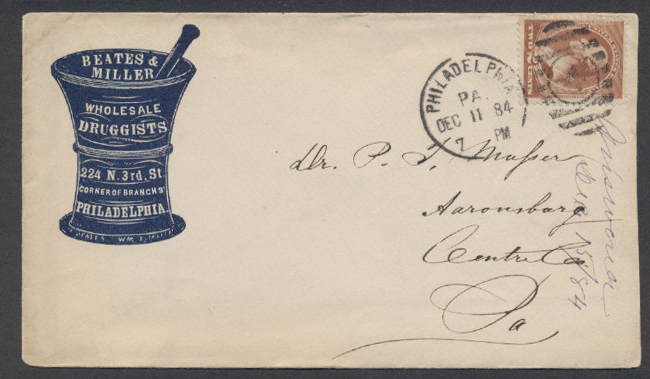 BEATES &
MILLER
WHOLESALE
DRUGGISTS
224 N. 3rd. St
CORNER OF BRANCH St
PHILADELPHIA.
PHILADELPHIA
PA.
DEC 11 84
7 PM
TWO CENTS
Dr. P. T. Musser
Aaronsburg
Centre Co
Pa
Answered
Dec 15/84